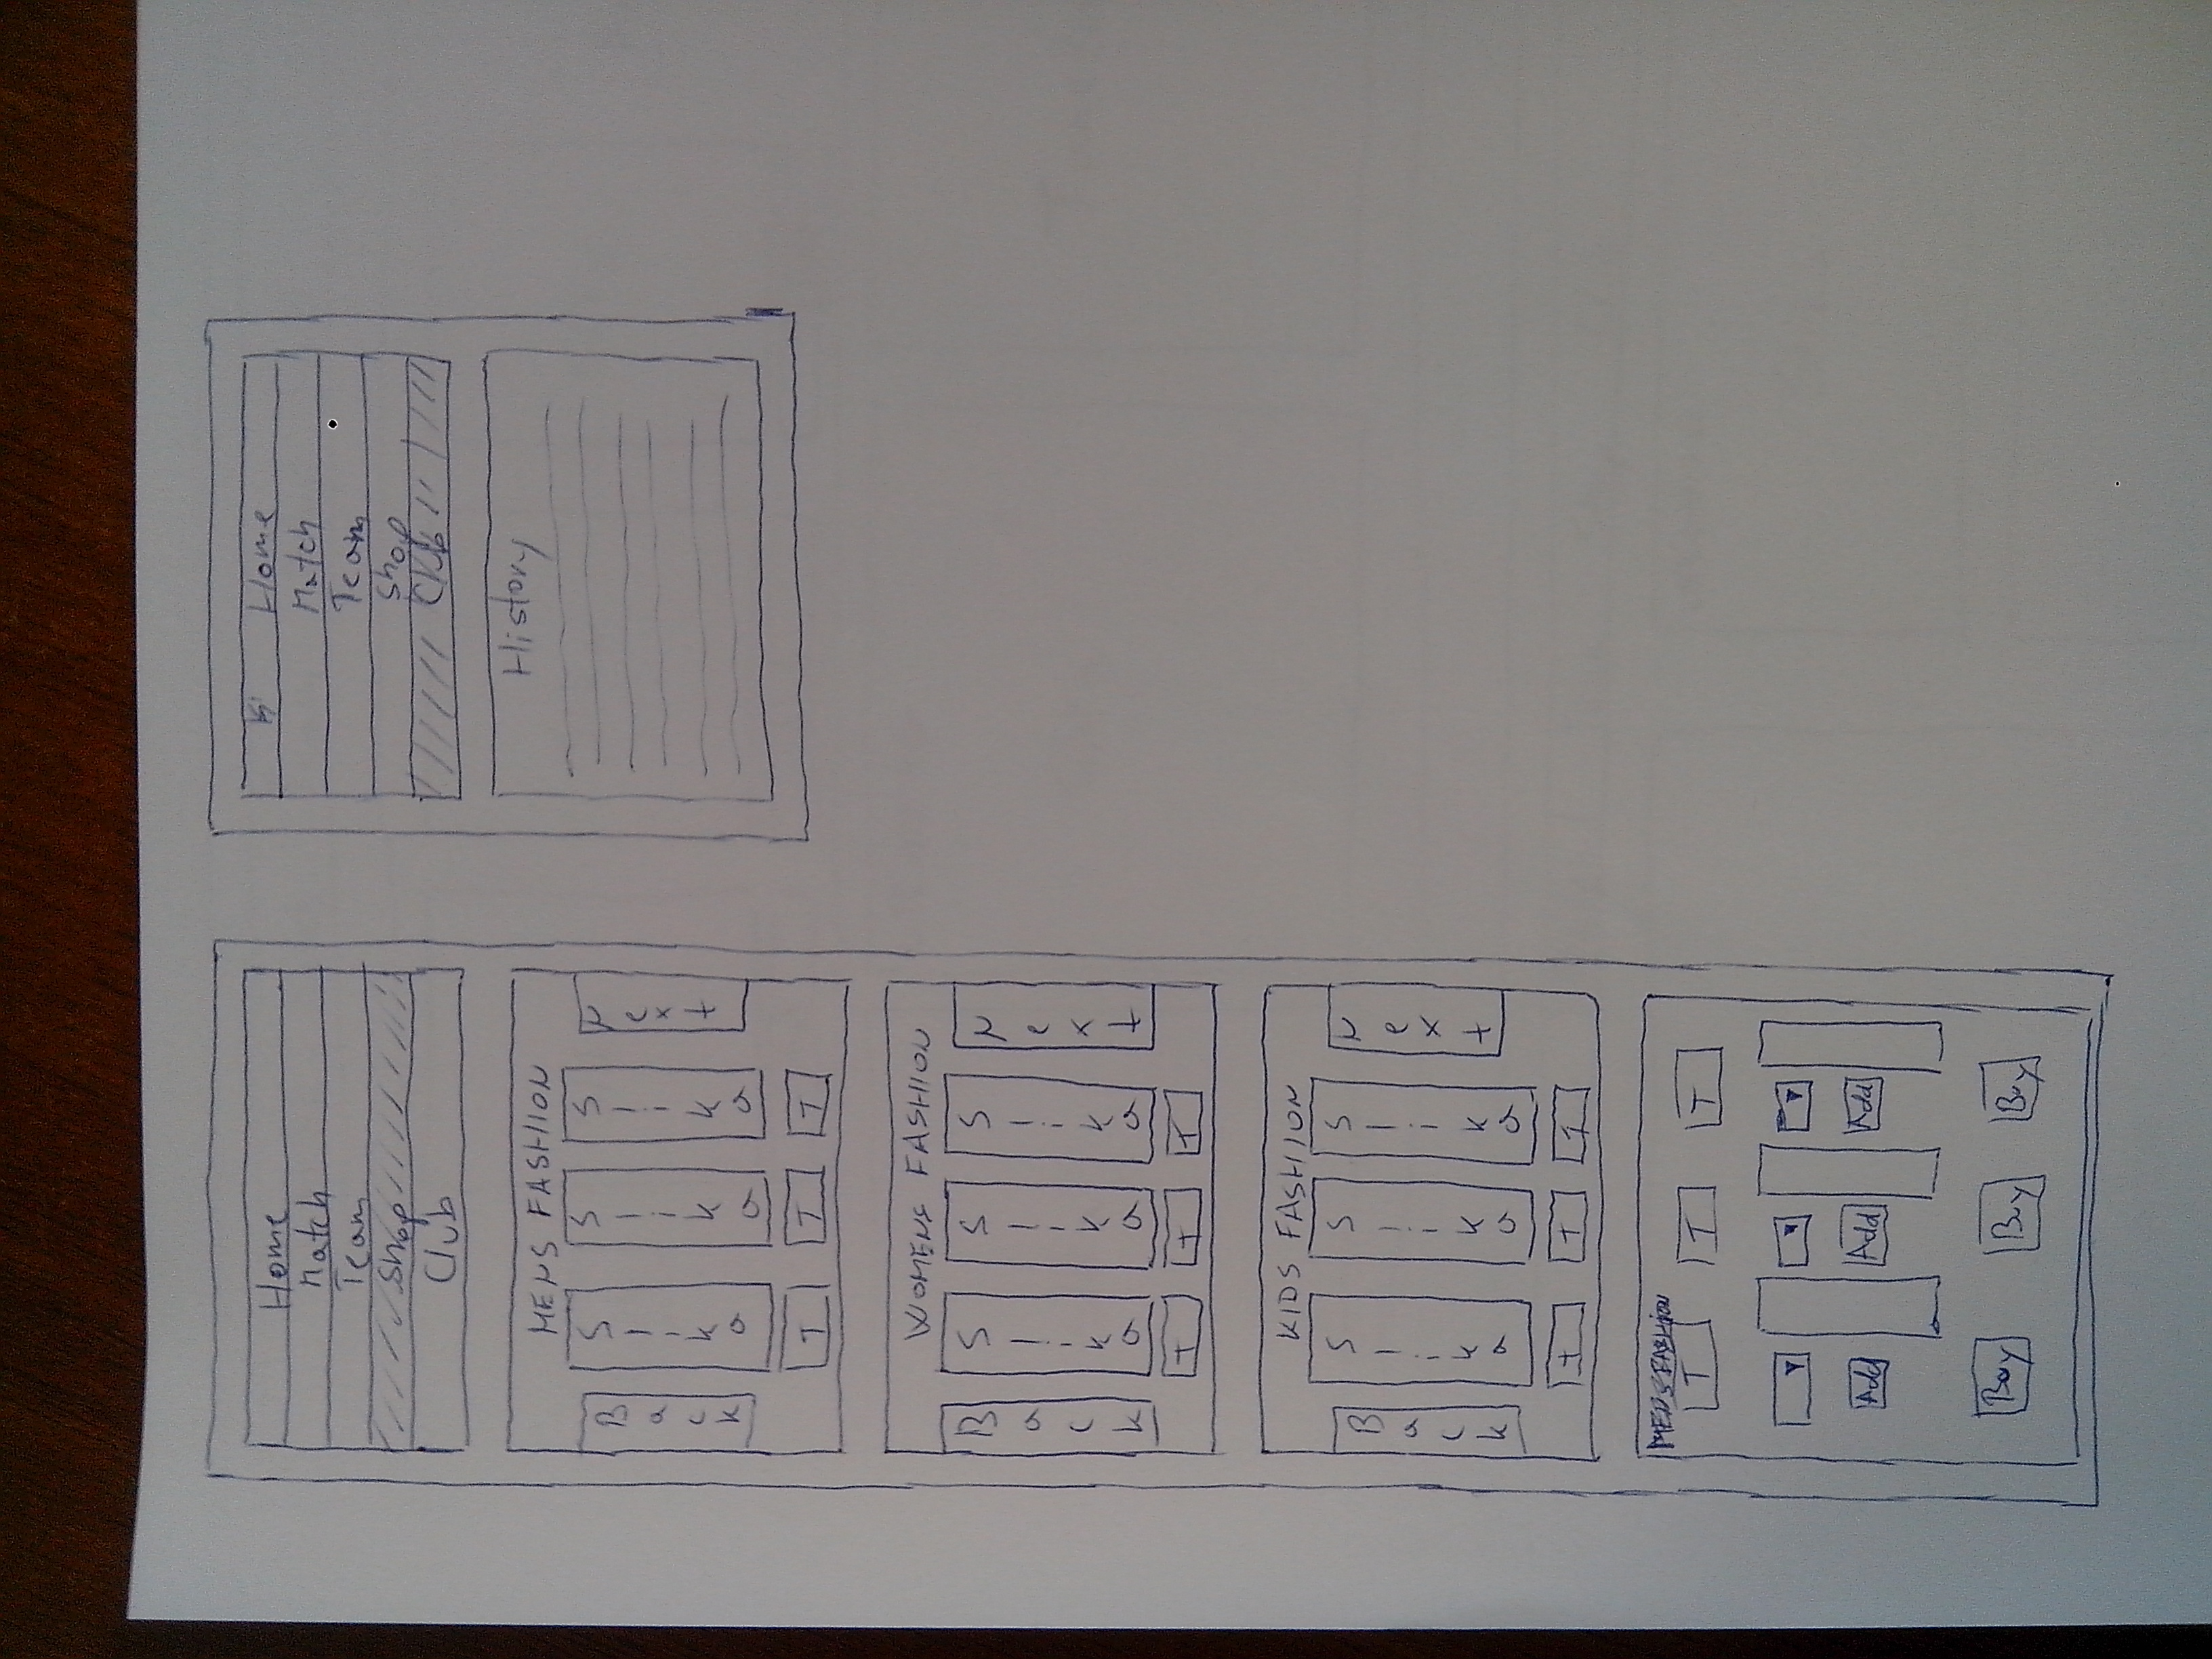 Home
Match
Team
Shop
Club
MENS FASHION
Back
Slika
Slika
Slika
Next
T
T
T
WOMENS FASHION
Back
Slika
Slika
Slika
Next
T
T
T
KIDS FASHION
Back
Slika
Slika
Slika
Next
T
T
T
MENS FASHION
T
T
T
Add
Add
Add
Buy
Buy
Buy
Home
Match
Team
Shop
Club
History